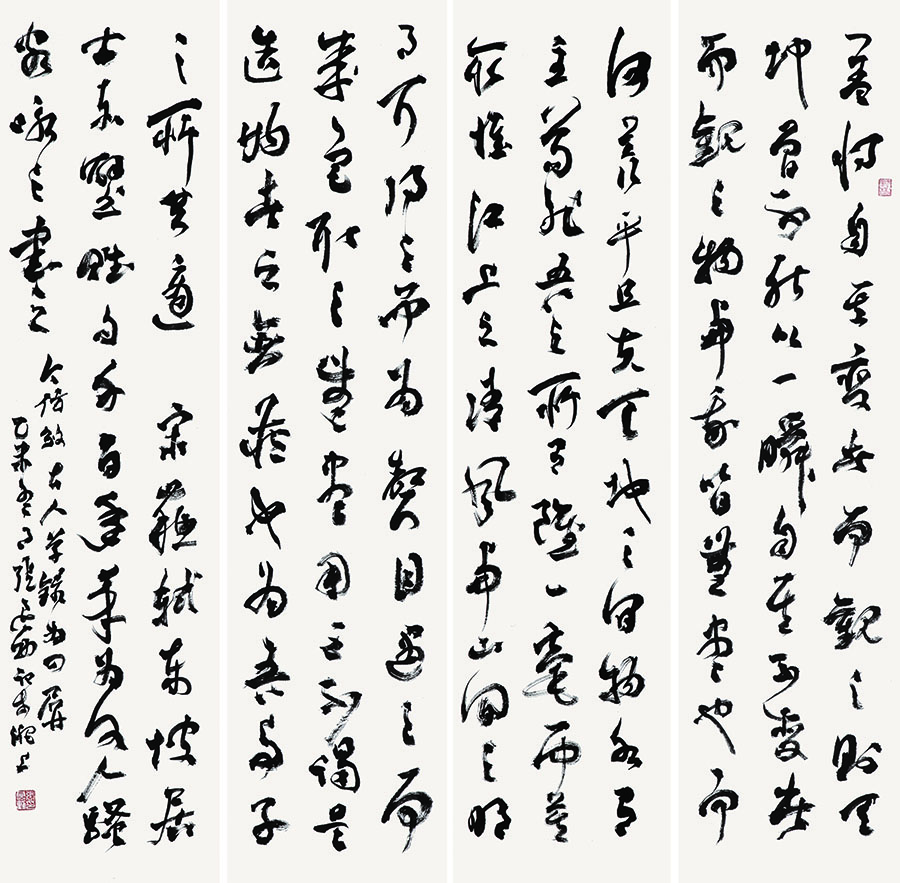 蓋將自其變者而觀之則天
地曾不能以一瞬自其不變者
而觀之物與我皆無盡也而
何羨乎且夫天地之間物各有
主苟非吾之所有雖一毫而莫
取惟江上之清風與山間之明
月耳得之而為聲目遇之而
成色取之無盡用之不竭是
造物者之無藏也為吾與子
之所共適 宋蘇軾東坡居
士赤壁賦句千百年來為文人騷
客咏之書之
今仿效古人草錄為四屏
乙未冬月張西